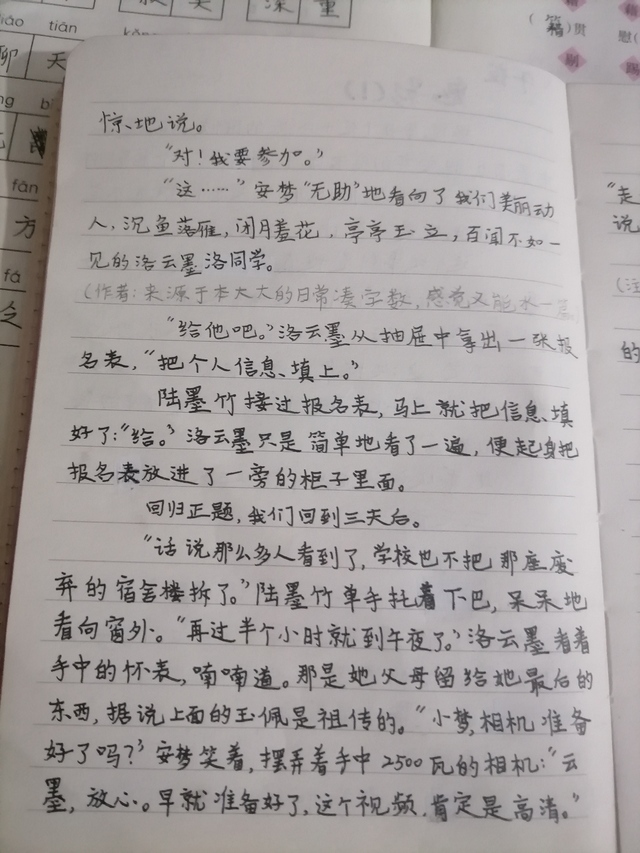 惊地说。
“对！我要参加。”
“这……”安梦“无助”地看向了我们美丽动
人，沉鱼落雁，闭月羞花，亭亭玉立，百闻不如一
见的洛云墨洛同学。
(作者：来源于本大大的日常凑字数，感觉又能水一
“给他吧。”洛云墨从抽屉中拿出一张报
名表，“把个人信息填上。”
陆墨竹接过报名表，马上就把信息填
好了：“给。”洛云墨只是简单地看了一遍，便起身把
报名表放进了一旁的柜子里面。
回归正题，我们回到三天后。
“话说那么多人看到了，学校也不把那座废
弃的宿舍楼拆了。”陆墨竹单手托着下巴，呆呆地
看向窗外。“再过半个小时就到午夜了。”洛云墨看着
手中的怀表，喃喃道。那是她父母留给她最后的
东西，据说上面的玉佩是祖传的。“小梦，相机准备
好了吗？”安梦笑着，摆弄着手中2500瓦的相机：“云
墨，放心。早就准备好了，这个视频，肯定是高清。”
liáo tiān
聊 天
深 重
fān
方
fá
(籍)贯
慰(
刷
“走
说
(注
的